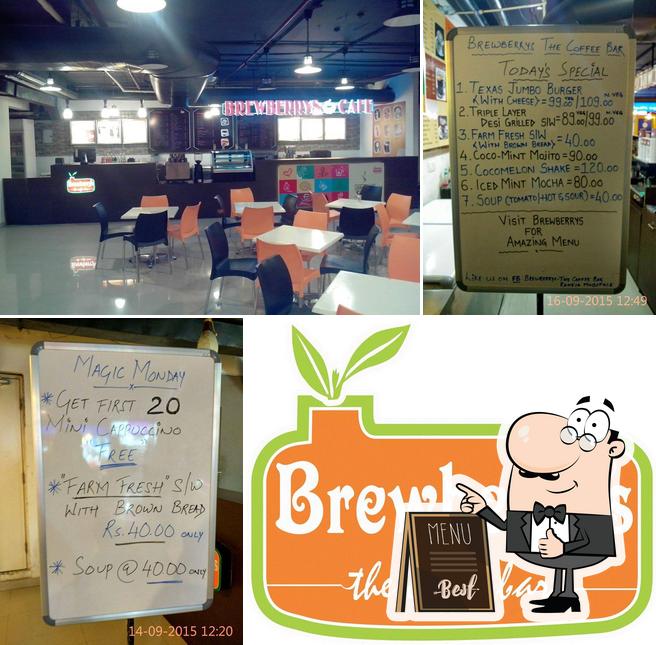 BREWBERRYS CAFE
BREWBERRYS THE COFFEE BAR
TODAY'S SPECIAL
1. TEXAS JUMBO BURGER
<WITH CHEESE> = 99.00/109.00
2. TRIPLE LAYER
DESI GRILLED S/W = 89.00/99.00
3. FARM FRESH S/W
<WITH BROWN BREAD> = 40.00
4. COCO-MINT MOJITO = 90.00
5. COCOMELON SHAKE = 120.00
6. ICED MINT MOCHA = 80.00
7. SOUP (TOMATO/HOT & SOUR) = 40.00
VISIT BREWBERRYS
FOR
AMAZING MENU
LIKE US ON FB BREWBERRYS-THE COFFEE BAR
16-09-2015 12:49
MAGIC MONDAY
* GET FIRST 20
MINI CAPPUCCINO
"FREE"
* "FARM FRESH" S/W
WITH BROWN BREAD
Rs. 40.00 ONLY
* SOUP @ 40.00 ONLY
14-09-2015 12:20
MENU
Best